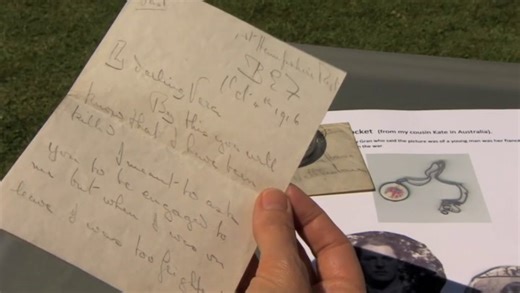 1st Hampshire Regt
B E F
Oct 1916
My darling Vera
By this you will
know that I have been
killed
I meant to ask
you to be engaged to
me but when I was on
leave I was too frightened
ocket (from my cousin Kate in Australia).
Gran who said the picture was of a young man was her fiancé
the war